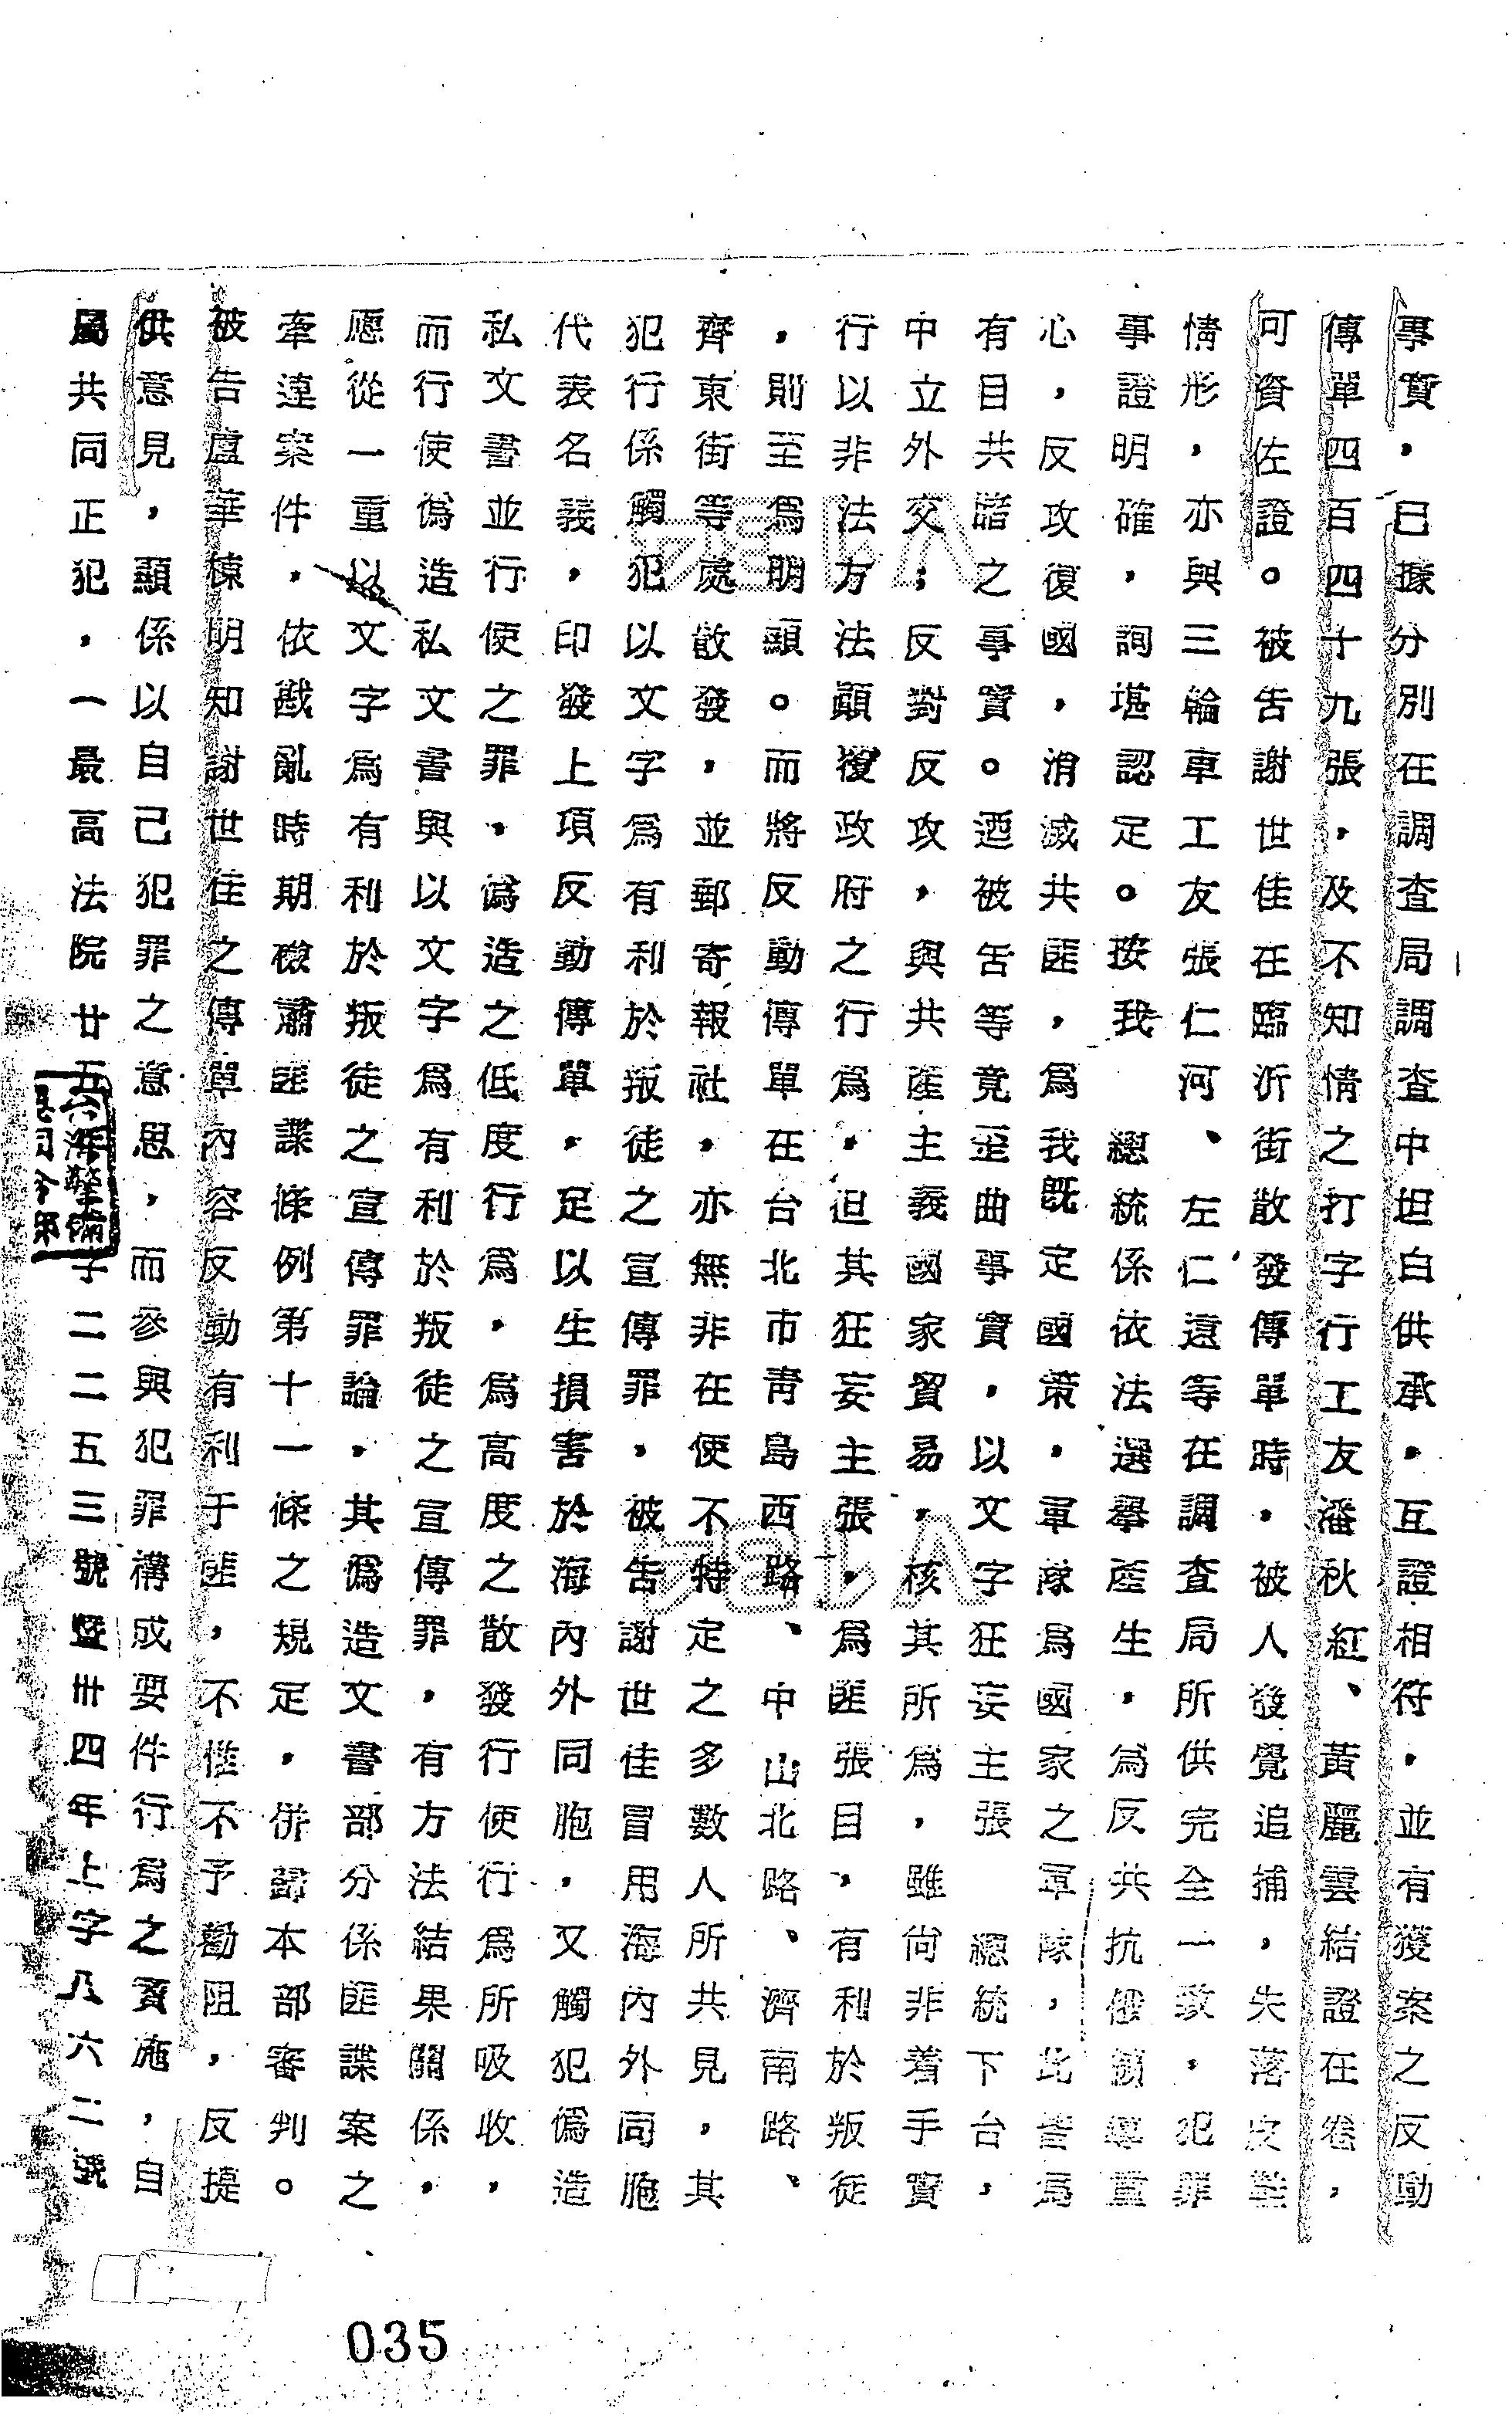 事實，已據分別在調查局調查中坦白供承，互證相符，並有獲案之反動
傳單四百四十九張，及不知情之打字行工友潘秋紅、黃麗雲結證在卷，
可資佐證。被告謝世佳在臨沂街散發傳單時，被人發覺追捕，失落皮鞋
情形，亦與三輪車工友張仁河、左仁遠等在調查局所供完全一致，犯罪
事證明確，詞堪認定。按我　總統係依法選舉產生，為反共抗俄領導重
心，反攻復國，消滅共匪，為我既定國策，軍隊為國家之軍隊，此皆為
有目共睹之事實。迺被告等竟歪曲事實，以文字狂妄主張　總統下台，
中立外交；反對反攻，與共產主義國家貿易，核其所為，雖尚非着手實
行以非法方法顛覆政府之行為，但其狂妄主張，為匪張目，有利於叛徒
，則至為明顯。而將反動傳單在台北市青島西路、中山北路、濟南路、
齊東街等處散發，並郵寄報社，亦無非在使不特定之多數人所共見，其
犯行係觸犯以文字為有利於叛徒之宣傳罪，被告謝世佳冒用海內外同胞
代表名義，印發上項反動傳單，足以生損害於海內外同胞，又觸犯偽造
私文書並行使之罪，偽造之低度行為，為高度之散發行使行為所吸收，
而行使偽造私文書與以文字為有利於叛徒之宣傳罪，有方法結果關係，
應從一重以文字為有利於叛徒之宣傳罪論，其偽造文書部分係匪諜案之
牽連案件，依戡亂時期檢肅匪諜條例第十一條之規定，併歸本部審判。
被告盧華棟明知謝世佳之傳單內容反動有利于匪，不惟不予勸阻，反提
供意見，顯係以自己犯罪之意思，而參與犯罪構成要件行為之實施，自
屬共同正犯，一最高法院廿五字二二五三號暨卅四年上字八六二號
035